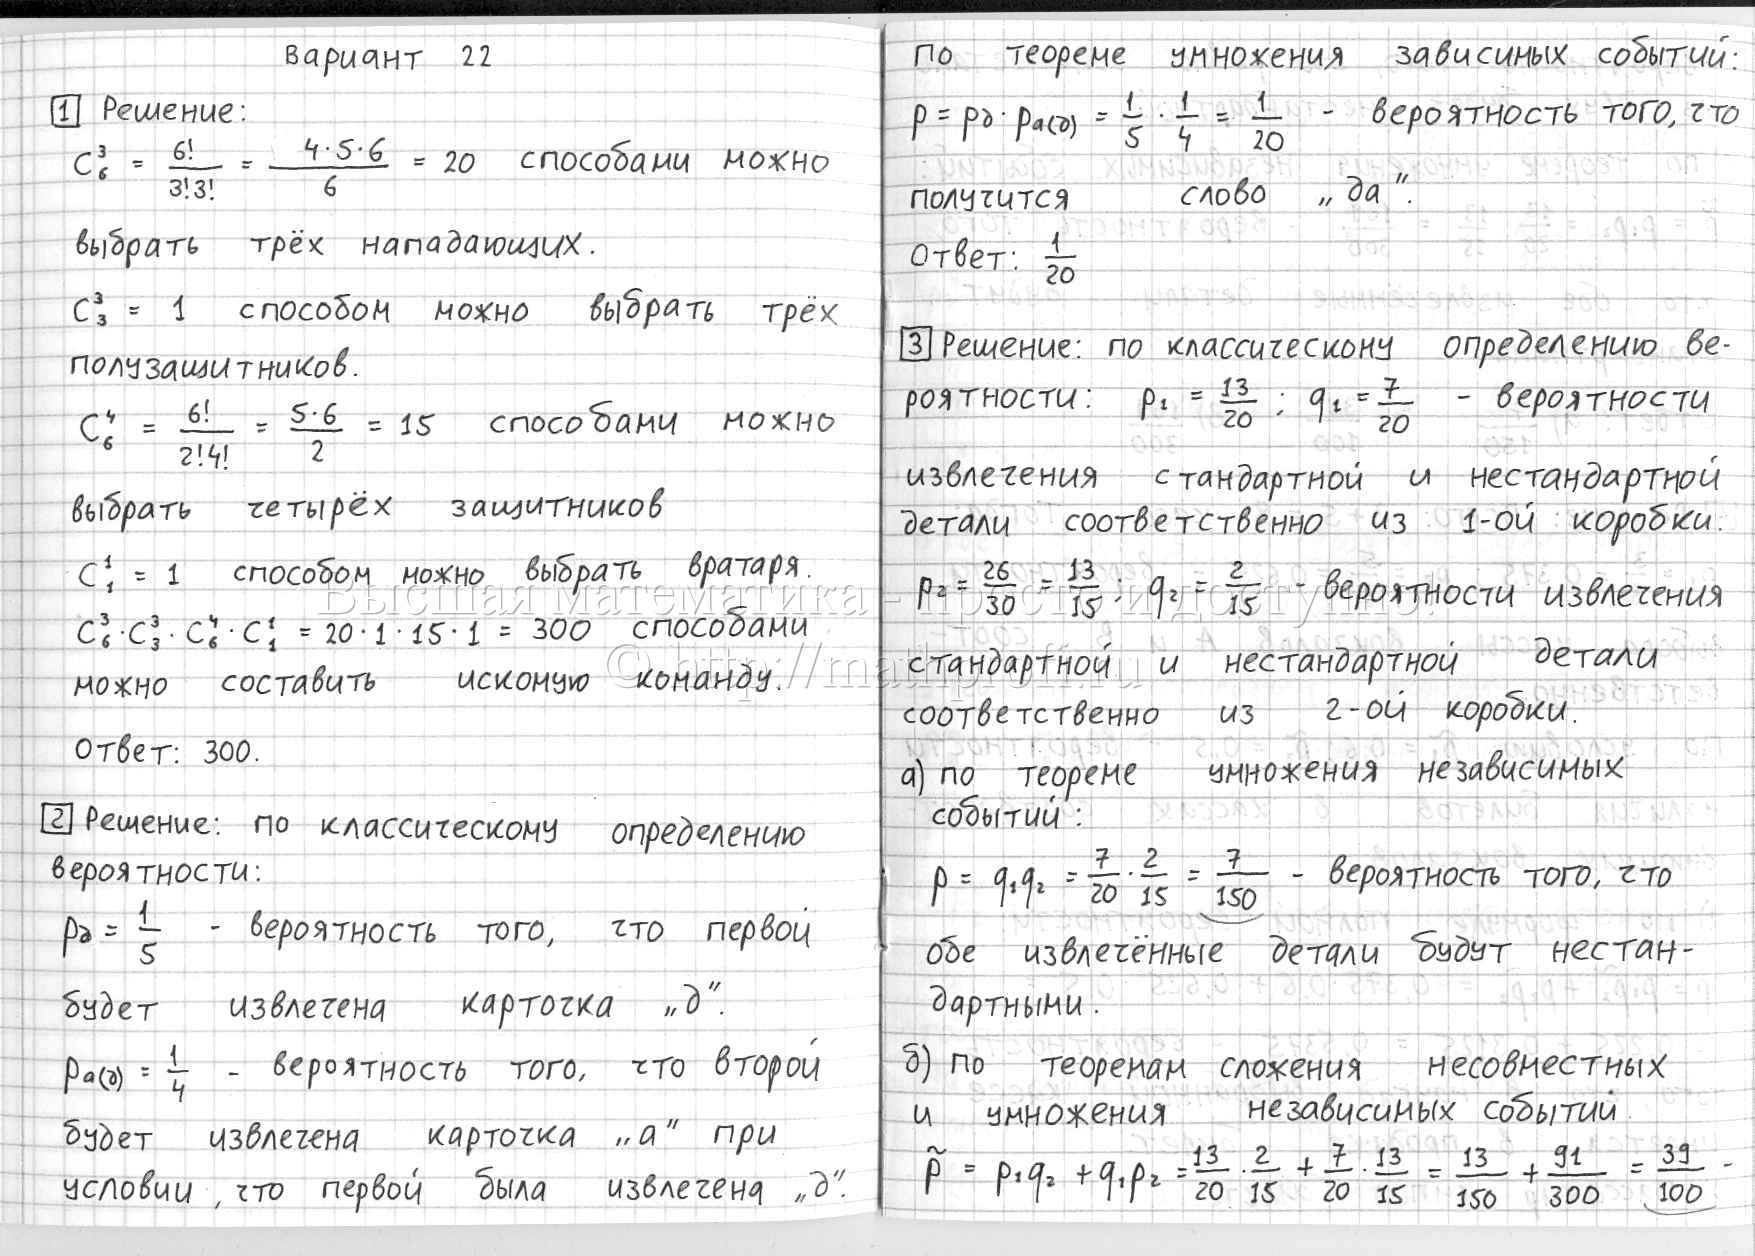 Вариант 22
1 Решение:
C₆³ = 6!/(3!3!) = 4·5·6/6 = 20 способами можно
выбрать трёх нападающих.
C₃³ = 1 способом можно выбрать трёх
полузащитников.
C₆⁴ = 6!/(2!4!) = 5·6/2 = 15 способами можно
выбрать четырёх защитников
C₁¹ = 1 способом можно выбрать вратаря.
C₆³·C₃³·C₆⁴·C₁¹ = 20·1·15·1 = 300 способами
можно составить искомую команду.
Ответ: 300.
2 Решение: по классическому определению
вероятности:
pд = 1/5 - вероятность того, что первой
будет извлечена карточка „д”.
pа(д) = 1/4 - вероятность того, что второй
будет извлечена карточка „а” при
условии, что первой была извлечена „д”.
по теореме умножения зависимых событий:
p = pд · pа(д) = 1/5 · 1/4 = 1/20 - вероятность того, что
получится слово „да”.
Ответ: 1/20
3 Решение: по классическому определению ве-
роятности: p₁ = 13/20; q₁ = 7/20 - вероятности
извлечения стандартной и нестандартной
детали соответственно из 1-ой коробки.
p₂ = 26/30 = 13/15; q₂ = 2/15 - вероятности извлечения
стандартной и нестандартной детали
соответственно из 2-ой коробки.
а) по теореме умножения независимых
событий:
p = q₁q₂ = 7/20 · 2/15 = 7/150 - вероятность того, что
обе извлечённые детали будут нестан-
дартными.
б) по теоремам сложения несовместных
и умножения независимых событий.
p̃ = p₁q₂ + q₁p₂ = 13/20 · 2/15 + 7/20 · 13/15 = 13/150 + 91/300 = 39/100 -
Высшая математика - просто и доступно!
© http://mathprofi.ru